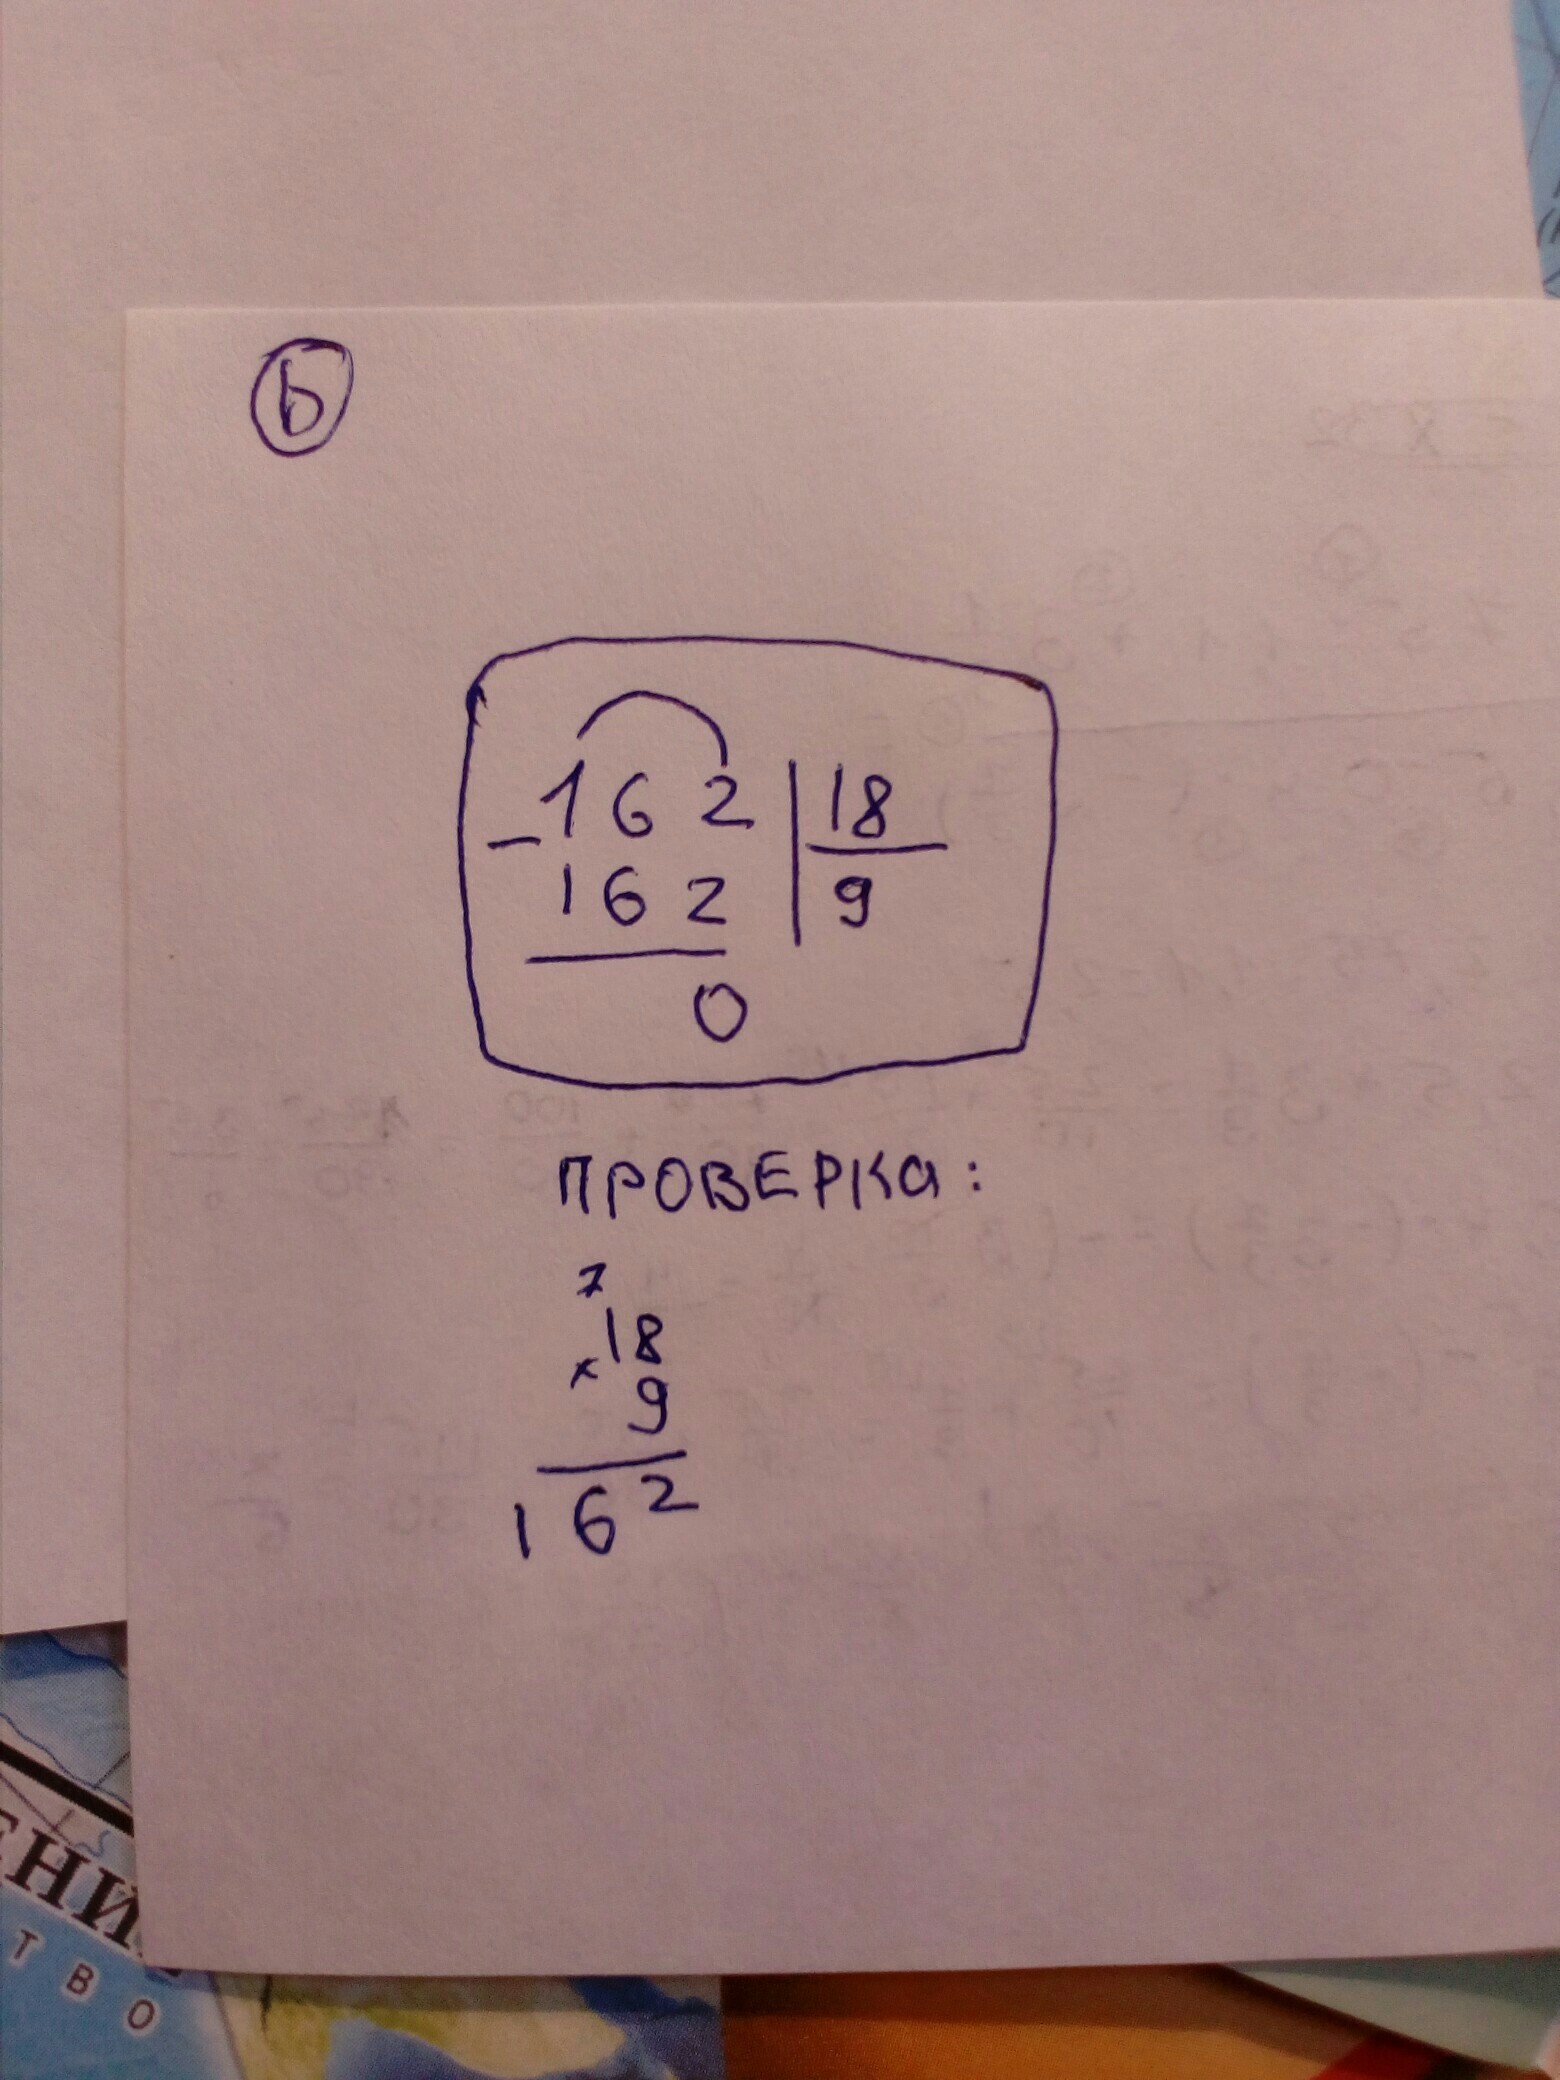 b
162 | 18
- 162 | 9
0
ПРОВЕРКА:
7
18
× 9
162
ЕНИ
ТВО